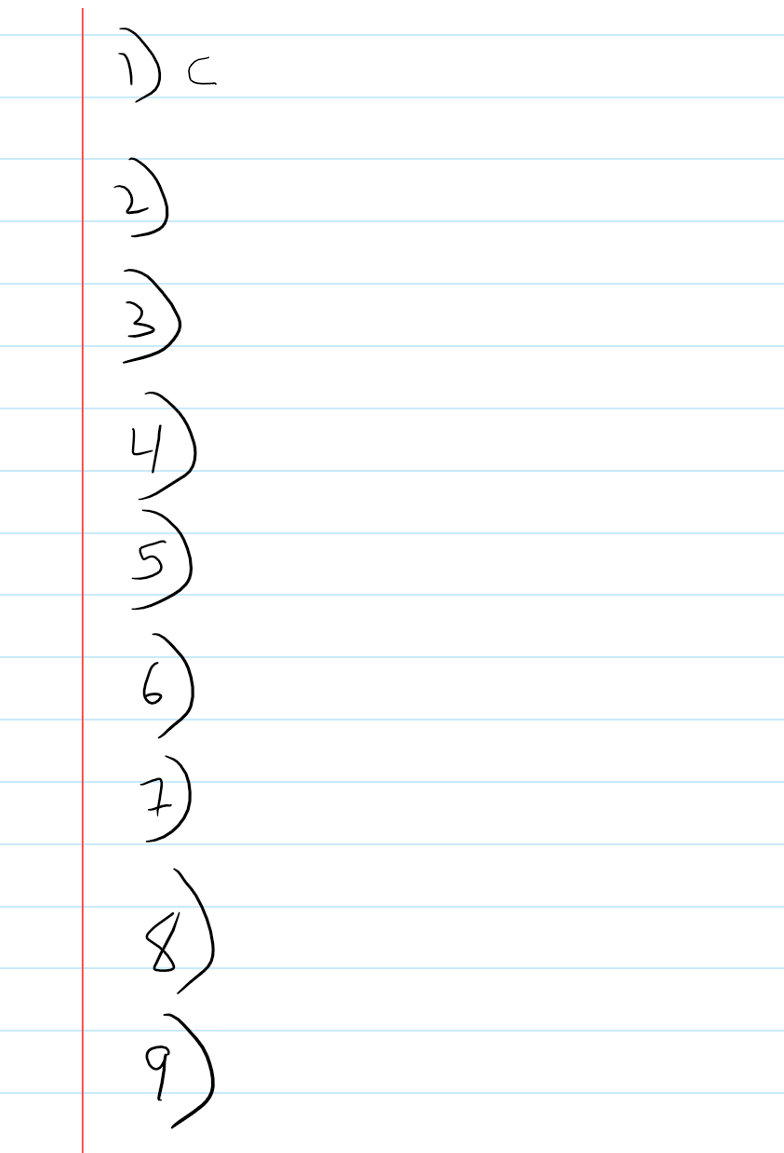 1) C
2)
3)
4)
5)
6)
7)
8)
9)